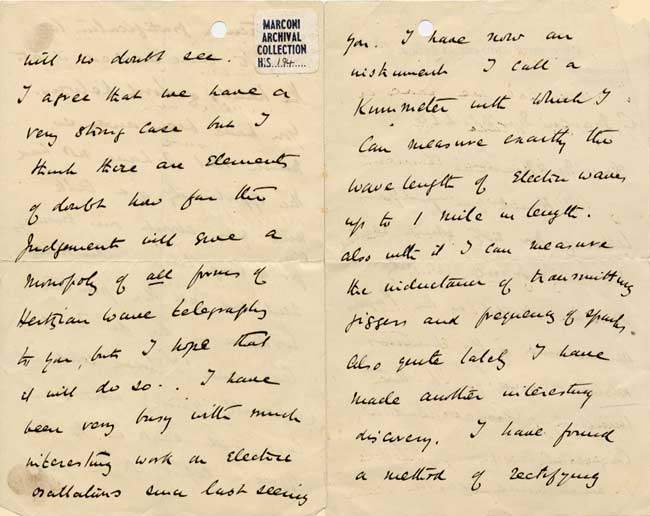 MARCONI
ARCHIVAL
COLLECTION
HIS. 194
will no doubt see.
I agree that we have a
very strong case but I
think there are Elements
of doubt how far the
Judgement will give a
monopoly of all forms of
Hertzian wave telegraphy
to you, but I hope that
it will do so.. I have
been very busy with much
interesting work on Electric
oscillations since last seeing
you. I have now an
instrument I call a
Kummeter with which I
Can measure exactly the
wave length of Electric waves
up to 1 mile in length.
also with it I can measure
the inductance of transmitting
jiggers and frequency of sparks.
Also quite lately I have
made another interesting
discovery. I have found
a method of rectifying